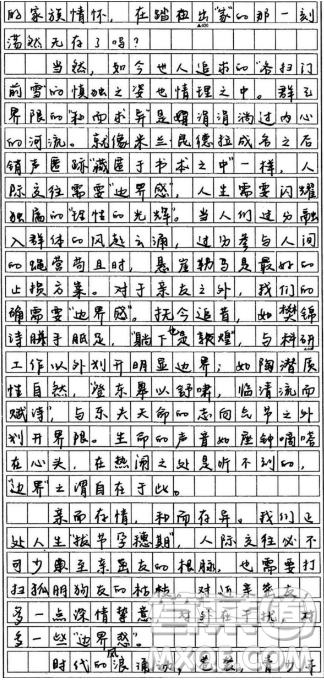 的家族情怀，在踏出"家"的那一刻
荡然无存了吗？
当然，如今世人追求的"各扫门
前雪的慎独之姿也情理之中。群己
界限的"和而求异"是涓涓淌过内心
的河流。就像米兰·昆德拉成名之后
销声匿迹"藏匿于书本之中"一样，人
际交往需要"边界感"，人生需要闪耀
独属的"理性的光辉"。当人们过分融
入群体的风起云涌，过分参与人间
的蝇营苟且时，悬崖勒马是最好的
止损方案。对于亲友之外，我们的
确需要"边界感"。抚今追昔，如樊锦
诗胼手胝足，"躺下也是敦煌"，与科研
工作以外划开明显边界；如陶潜质
性自然，"登东皋以舒啸，临清流而
赋诗"，与乐夫天命的志向之外
划开界限。生命的声音如座钟嘀嗒
在心头，在热闹之处是听不到的，
"边界"之谓自在于此。
亲而存情，和而存异。我们正
处人生"拔节孕穗期"，人际交往必不
可少囊至亲至友的根脉，也需要打
扫狐朋狗友的枯枝。对近亲挚友，
多一点深情挚意，对外在干扰，
多一些"边界感"。
时代的风浪涌动，